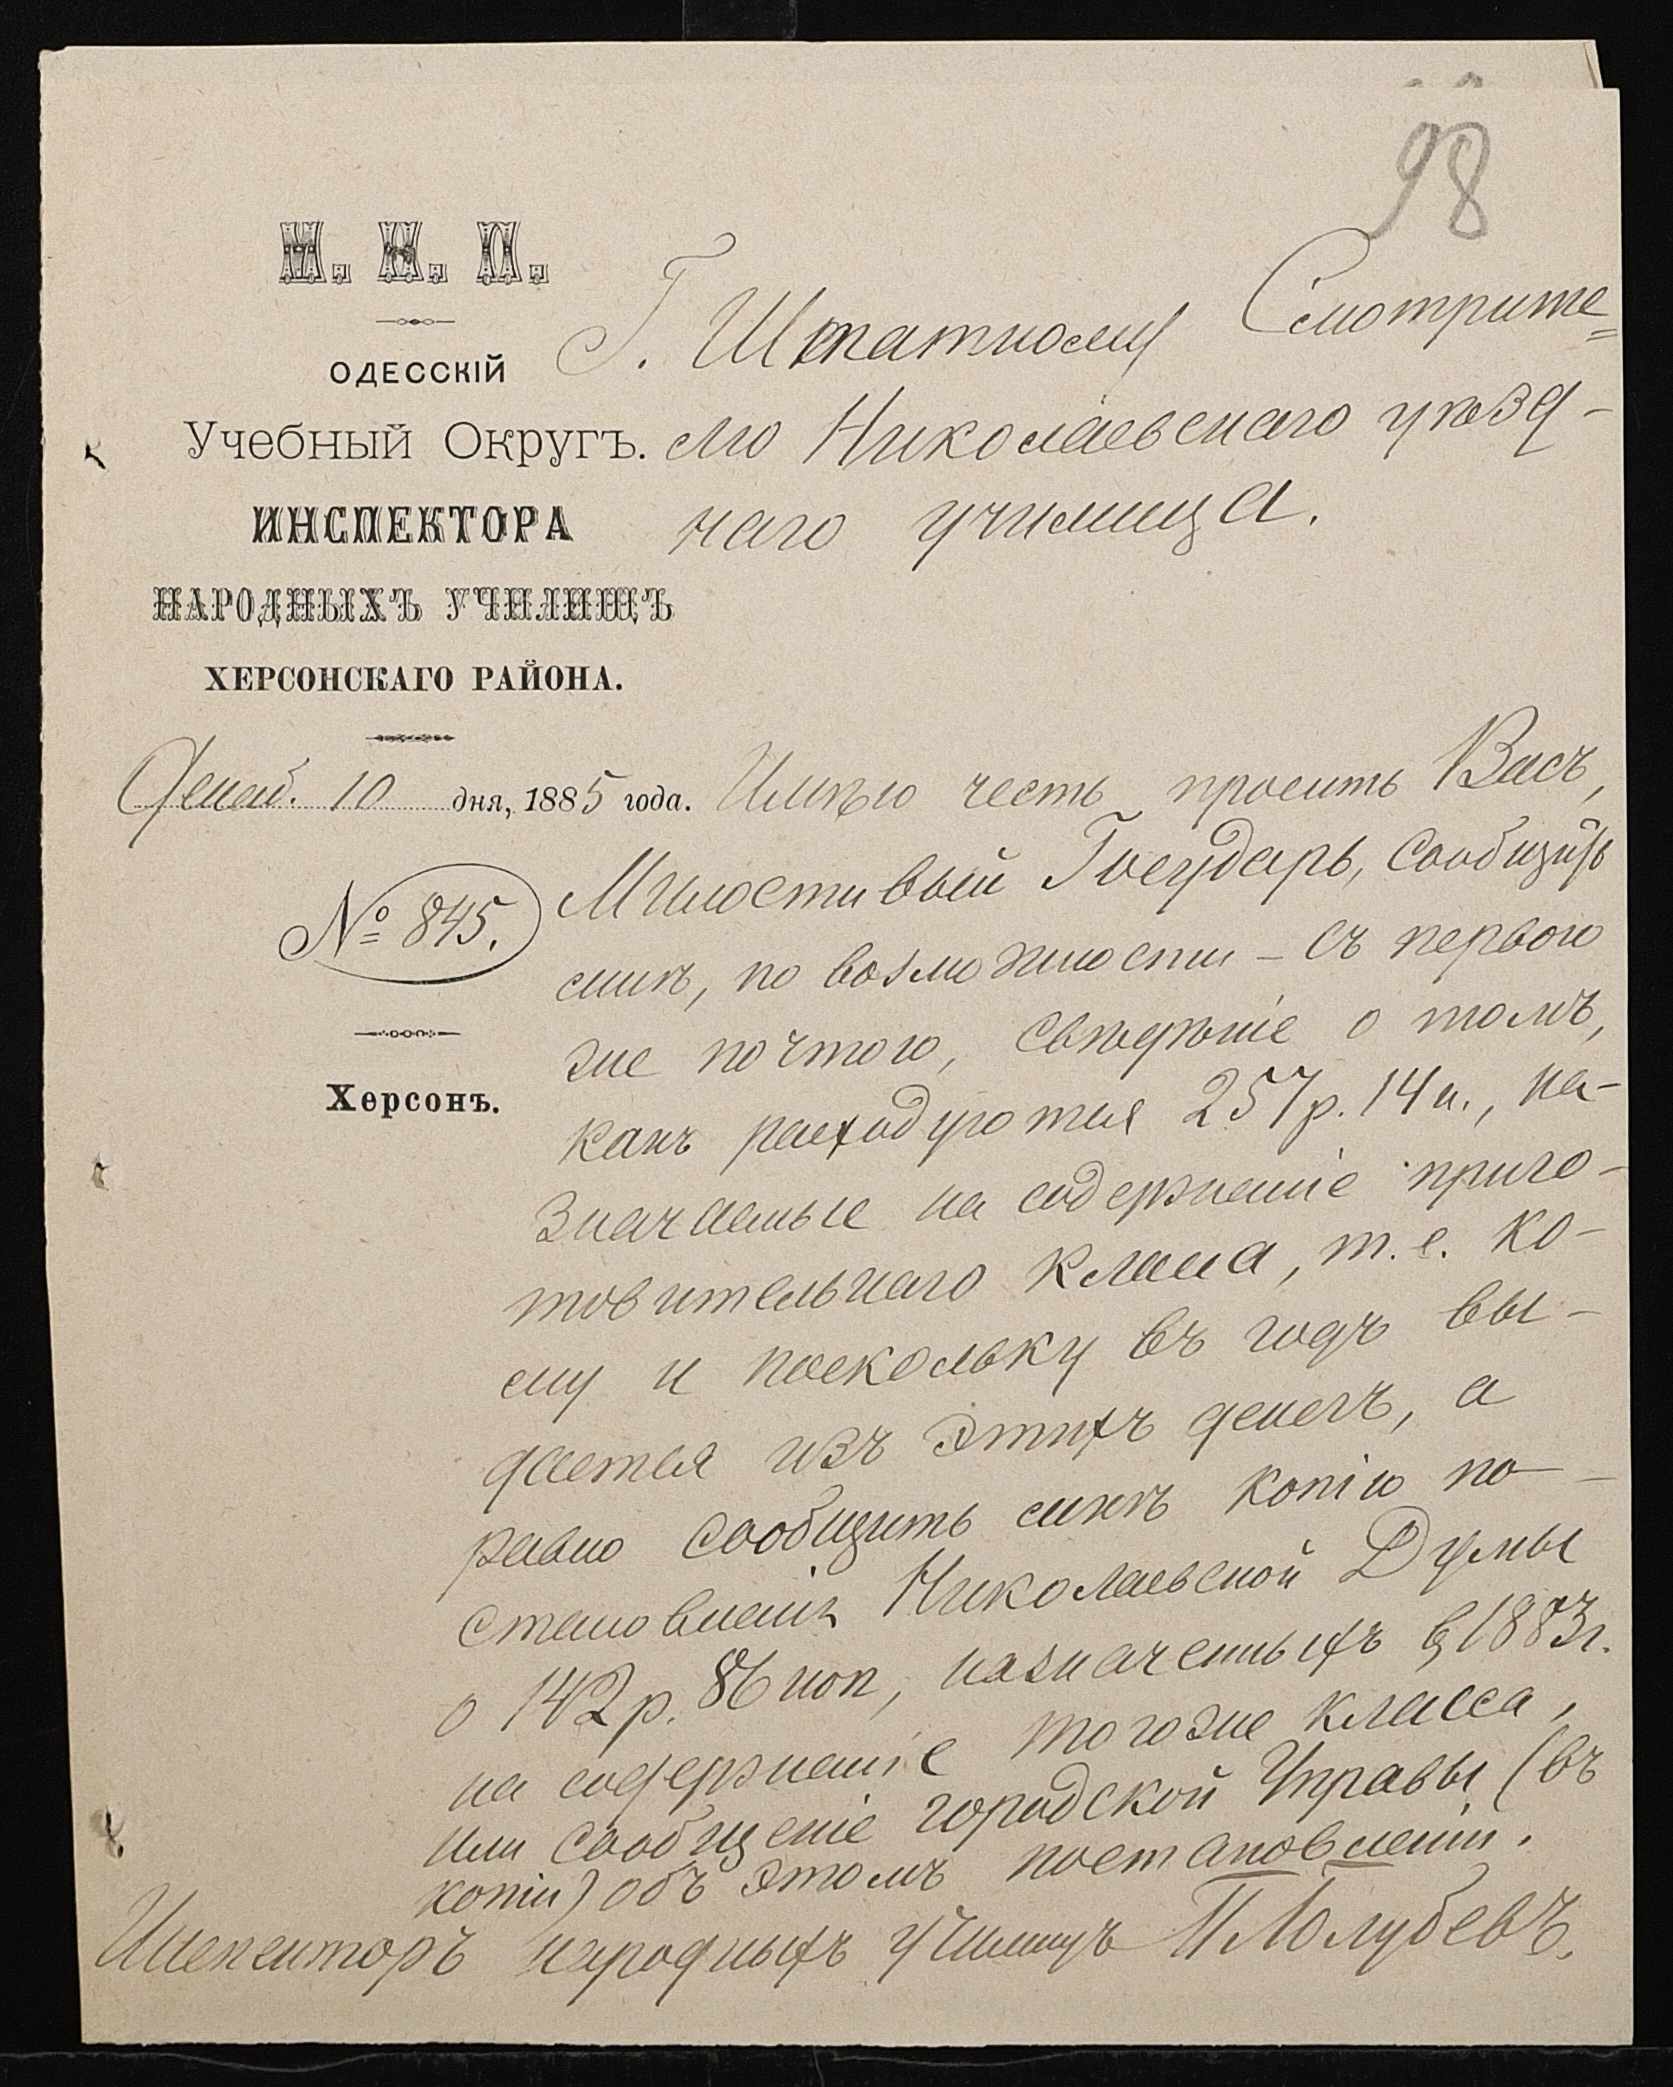 98
М. Н. П.
ОДЕССКІЙ
Учебный Округъ.
ИНСПЕКТОРА
НАРОДНЫХЪ УЧИЛИЩЪ
ХЕРСОНСКАГО РАЙОНА.
Декаб. 10 дня, 1885 года.
№ 845.
Херсонъ.
Г. Штатному Смотрите=
лю Николаевскаго уѣзд-
наго училища.
Имѣю честь просить Васъ,
Милостивый Государь, сообщить
мнѣ, по возможности - съ первою
же почтою, свѣдѣніе о томъ,
какъ расходуются 257 р. 14 к., на-
значаемые на содержаніе приго-
товительнаго класса, т. е. ко-
му и поскольку въ годъ вы-
дается изъ этихъ денегъ, а
равно сообщить мнѣ копію по-
становленія Николаевской Думы
о 142 р. 86 коп, назначенныхъ въ 1883 г.
на содержаніе тогоже класса,
или сообщеніе городской Управы (въ
копіи) объ этомъ постановленіи.
Инспекторъ народныхъ училищъ